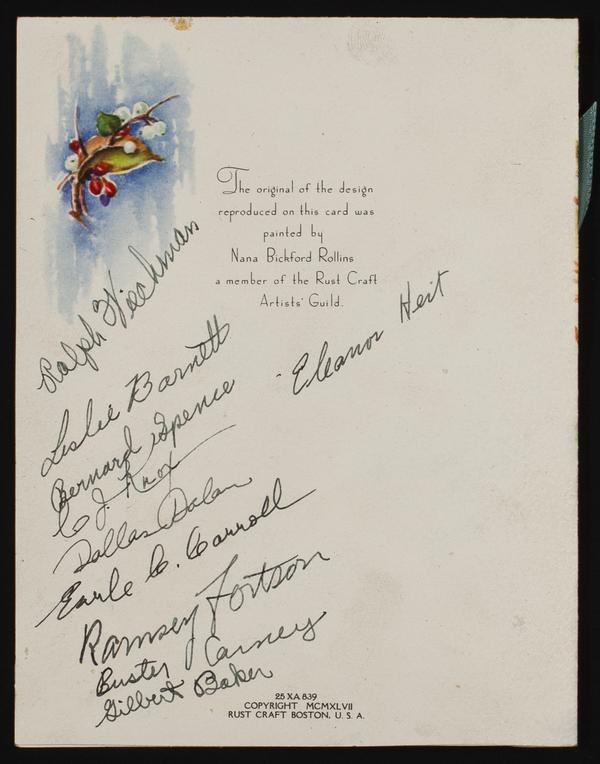 The original of the design
reproduced on this card was
painted by
Nana Bickford Rollins
a member of the Rust Craft
Artists' Guild.
Ralph Wiechman
Leslie Barnett
Bernard Spence - Eleanor Heit
C. J. Knox
Dallas Dolan
Earle C. Carroll
Ramsey Fortson
Buster Carney
Gilbert Baker
25 XA 839
COPYRIGHT MCMXLVII
RUST CRAFT BOSTON, U. S. A.